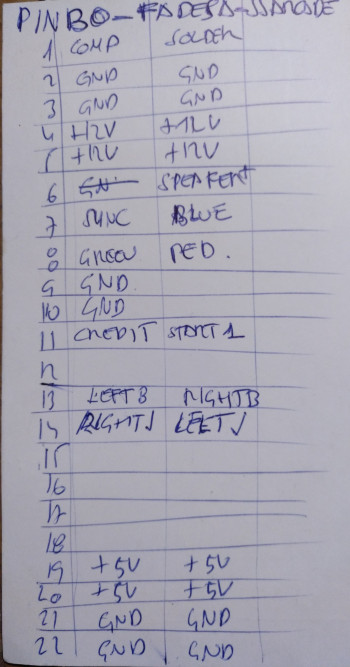 1 COMP SOLDER
2 GND GND
3 GND GND
4 +12V +12V
5 +12V +12V
6 SPEAKER+
7 SYNC BLUE
8 GREEN RED.
9 GND
10 GND
11 CREDIT START 1
12
13 LEFT B RIGHTB
14 RIGHTJ LEFTJ
15
16
17
18
19 +5V +5V
20 +5V +5V
21 GND GND
22 GND GND